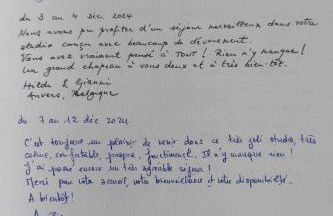 du 3 au 4 déc. 2024
Nous avons pu profiter d'un séjour merveilleux dans votre
studio conçu avec beaucoup de dévouement.
Vous avez vraiment pensé à TOUT! Rien n'y manque!
Un grand chapeau à vous deux et à très bientôt.
Hilde & Gianni
Anvers, Belgique
du 7 au 12 déc 2024.
C'est toujours un plaisir de venir dans ce très joli studio, très
calme, confortable, propre, fonctionnel. Il n'y manque rien!
J'ai passé encore un très agréable séjour!
Merci pour votre accueil, votre bienveillance et votre disponibilité.
A bientôt!